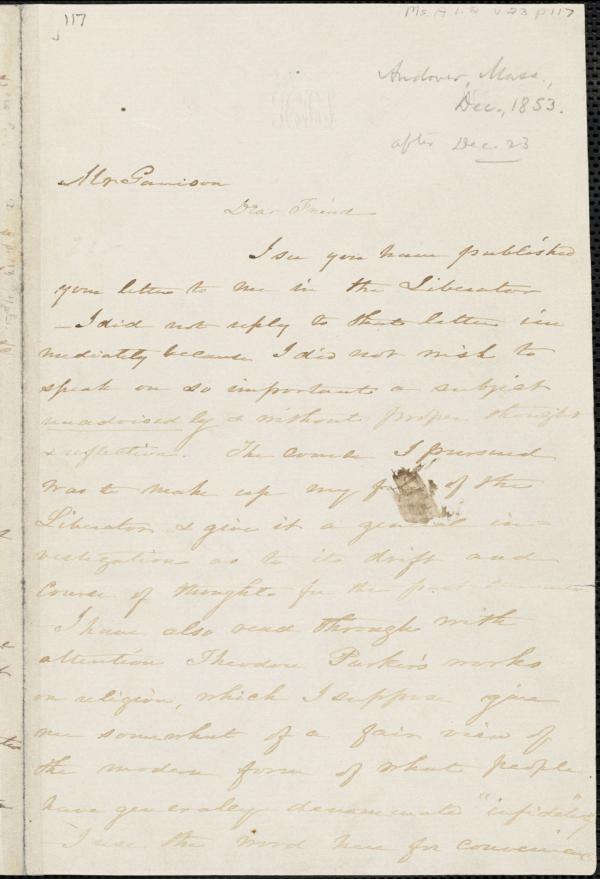 117
Ms. A. 1. 2 v. 23 p 117
Andover, Mass.,
Dec., 1853.
after Dec. 23
Mr Garrison
Dear Friend
I see you have published
your letter to me in the Liberator
– I did not reply to that letter im
mediatly because I did not wish to
speak on so important a subject
unadvisedly & without proper thought
& reflection. The course I pursued
was to make up my of the
Liberator & give it a general in=
vestigation as to its drift and
course of thought for the past
– I have also read through with
attention Theodore Parker's works
on religion, which I suppose give
me somewhat of a fair view of
the modern form of what people
have generaley denominate "infidelity
– I use the word here for convenience